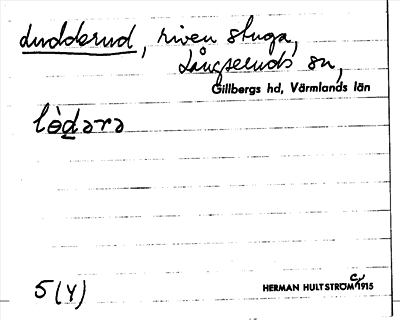 dudderud, riven stuga,
Långseruds sn,
Gillbergs hd, Värmlands län
lòdərə
5 (4)
HERMAN HULTSTRÖM 1915